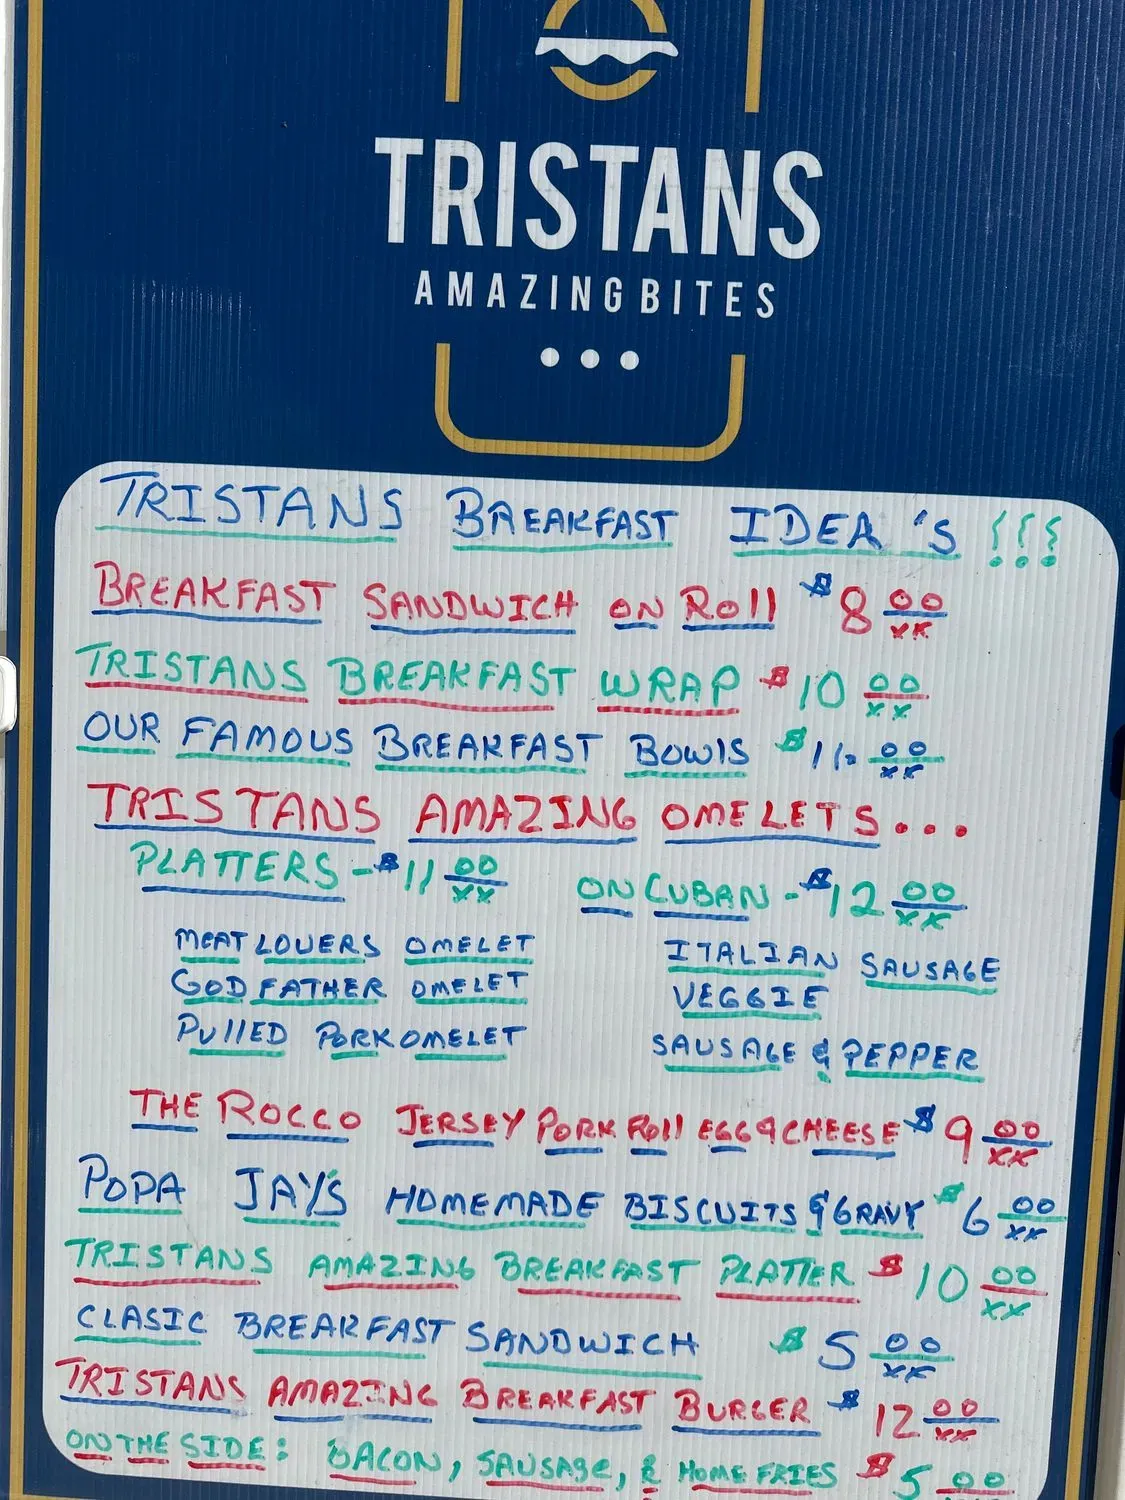 TRISTANS
AMAZING BITES
TRISTANS BREAKFAST IDEA'S !!!
BREAKFAST SANDWICH ON ROLL $8 00/xx
TRISTANS BREAKFAST WRAP $10 00/xx
OUR FAMOUS BREAKFAST BOWLS $11. 00/xx
TRISTANS AMAZING OMELETS...
PLATTERS - $11 00/xx ON CUBAN - $12 00/xx
MEAT LOVERS OMELET ITALIAN SAUSAGE
GOD FATHER OMELET VEGGIE
PULLED PORK OMELET SAUSAGE & PEPPER
THE ROCCO JERSEY PORK ROLL EGG & CHEESE $9 00/xx
POPA JAY'S HOMEMADE BISCUITS & GRAVY $6 00/xx
TRISTANS AMAZING BREAKFAST PLATTER $10 00/xx
CLASIC BREAKFAST SANDWICH $5 00/xx
TRISTANS AMAZING BREAKFAST BURGER $12 00/xx
ON THE SIDE: BACON, SAUSAGE, & HOME FRIES $5 00